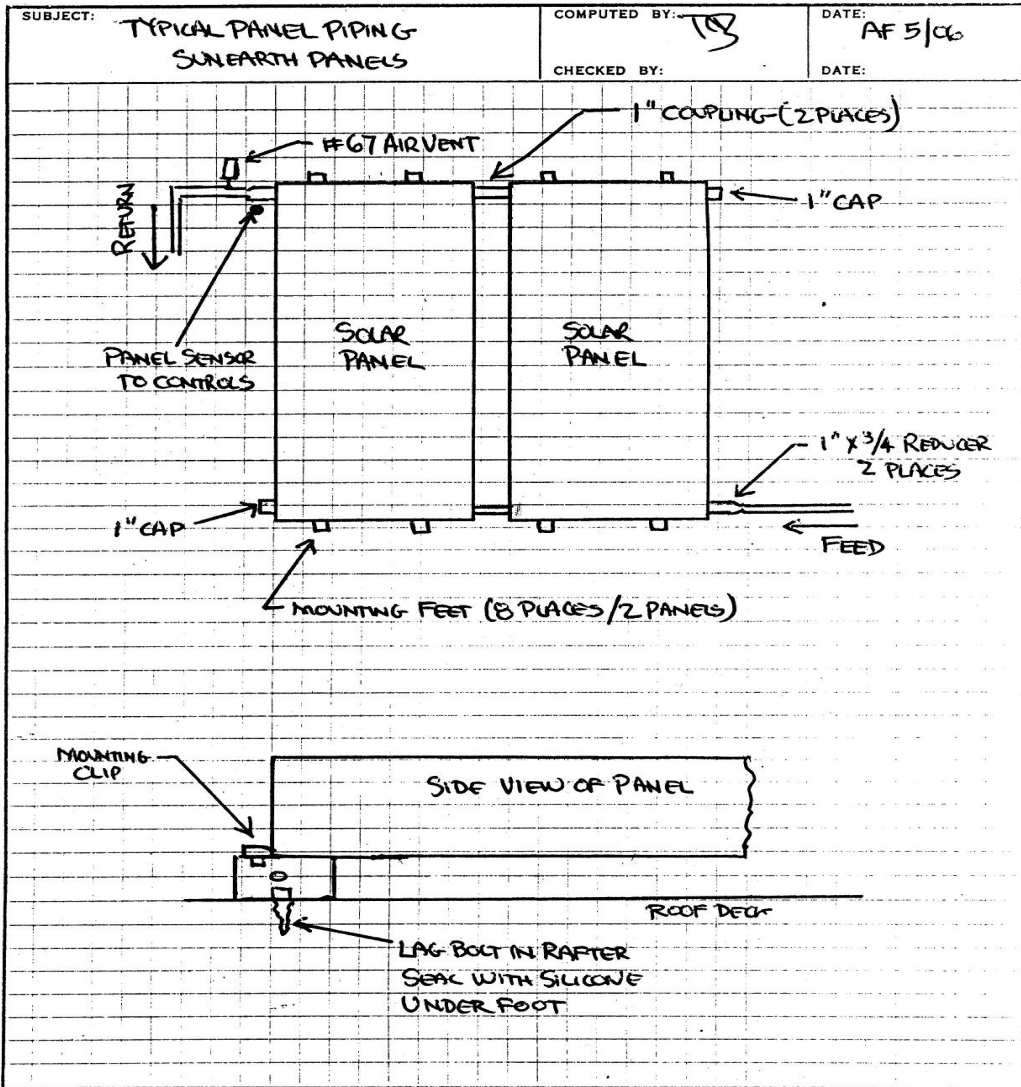 SUBJECT: TYPICAL PANEL PIPING
SUNEARTH PANELS
COMPUTED BY: TB
DATE: AF 5/06
CHECKED BY:
DATE:
1" COUPLING-(2 PLACES)
#67 AIR VENT
RETURN
1" CAP
PANEL SENSOR
TO CONTROLS
SOLAR
PANEL
SOLAR
PANEL
1" X 3/4 REDUCER
2 PLACES
1" CAP
FEED
MOUNTING FEET (8 PLACES/2 PANELS)
MOUNTING
CLIP
SIDE VIEW OF PANEL
ROOF DECK
LAG BOLT IN RAFTER
SEAL WITH SILICONE
UNDER FOOT